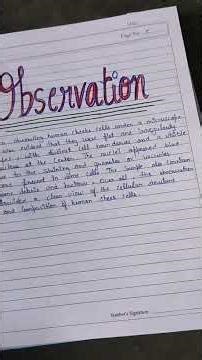 Date:
Page No. 5
Observation
Observing human cheek cells under a microscope
was evident that they were flat and irregularly
with distinct cell boundaries and a visible
nucleus at the center. The nuclei appeared blue
due to the staining and granules or vacuoles
were present in some cells. The sample also contain
some debris and bacteria. Over all, the observation
provides a clear view of the cellular structure
and composition of human cheek cells.
Teacher's Signature